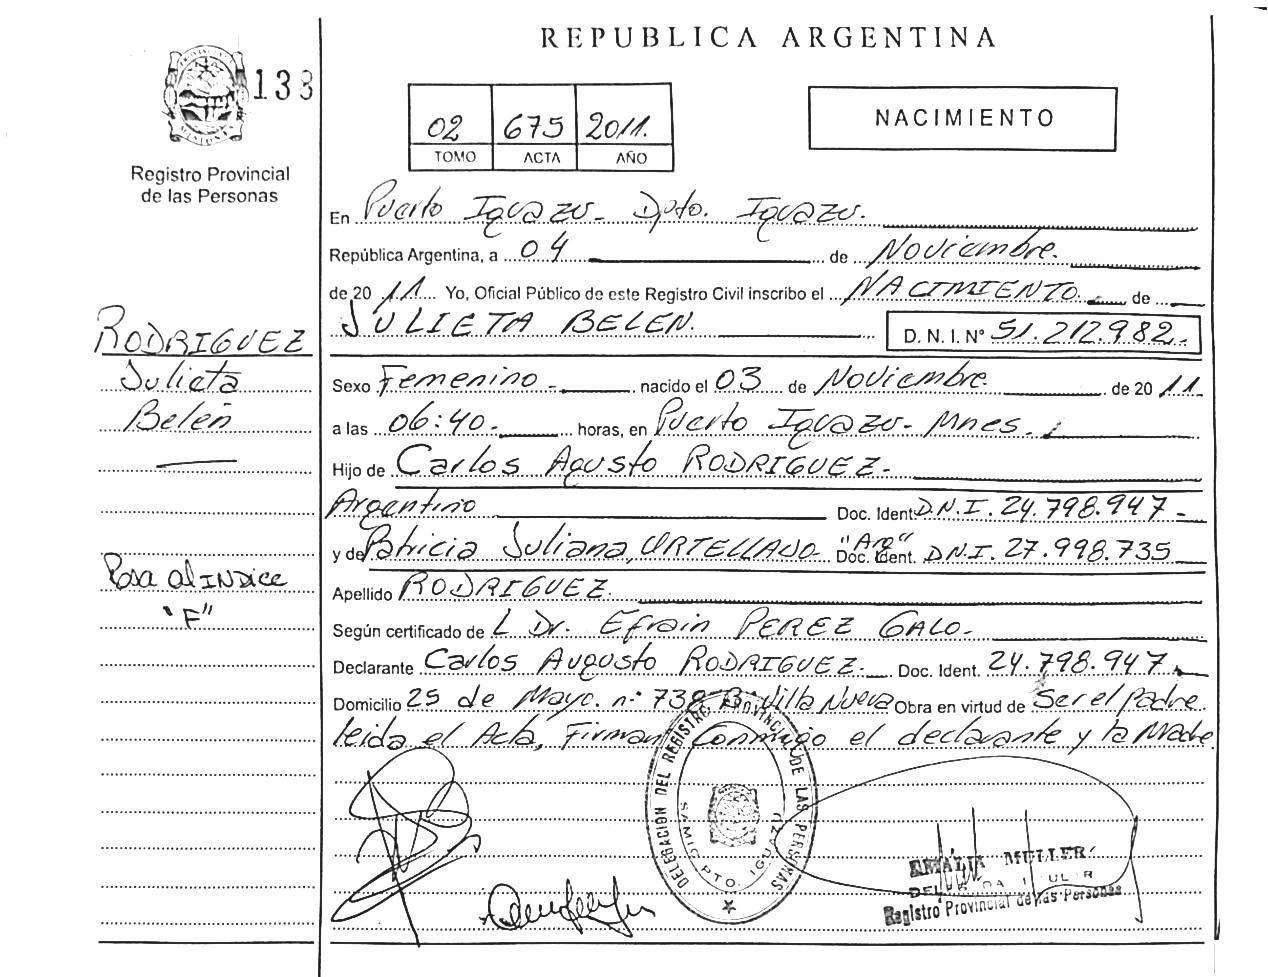 REPUBLICA ARGENTINA
133
MISIONES
Registro Provincial
de las Personas
02 675 2011.
TOMO ACTA AÑO
NACIMIENTO
En Puerto Iguazu- Dpto. Iguazu.
República Argentina, a 04 de Noviembre.
de 20 11 Yo, Oficial Público de este Registro Civil inscribo el NACIMIENTO de
JULIETA BELEN. D. N. I. Nº 51.212.982.-
RODRIGUEZ
Julieta
Belen
Sexo Femenino - nacido el 03 de Noviembre de 20 11.
a las 06:40.- horas, en Puerto Iguazu- Mnes.
Hijo de Carlos Agusto RODRIGUEZ-
Argentino Doc. Ident. D.N.I. 24.798.947-
y de Patricia Juliana, URTELLADO- "Arg" Doc. Ident. DNI. 27.998.735
Apellido RODRIGUEZ.
Según certificado de L Dr. Efrain PEREZ GALO-
Declarante Carlos Augusto RODRIGUEZ- Doc. Ident. 24.798.947
Domicilio 25 de Mayo. n° 738-Bº Villa Nueva Obra en virtud de Ser el Padre
leida el Acta, Firman Conmigo el declarante y la Madre
Pasa al INDice
"F"
DELEGACION DEL REGISTRO PROVINCIAL DE LAS PERSONAS
SAMIC PTO. IGUAZU
AMALIA MULLER
Registro Provincial de las Personas